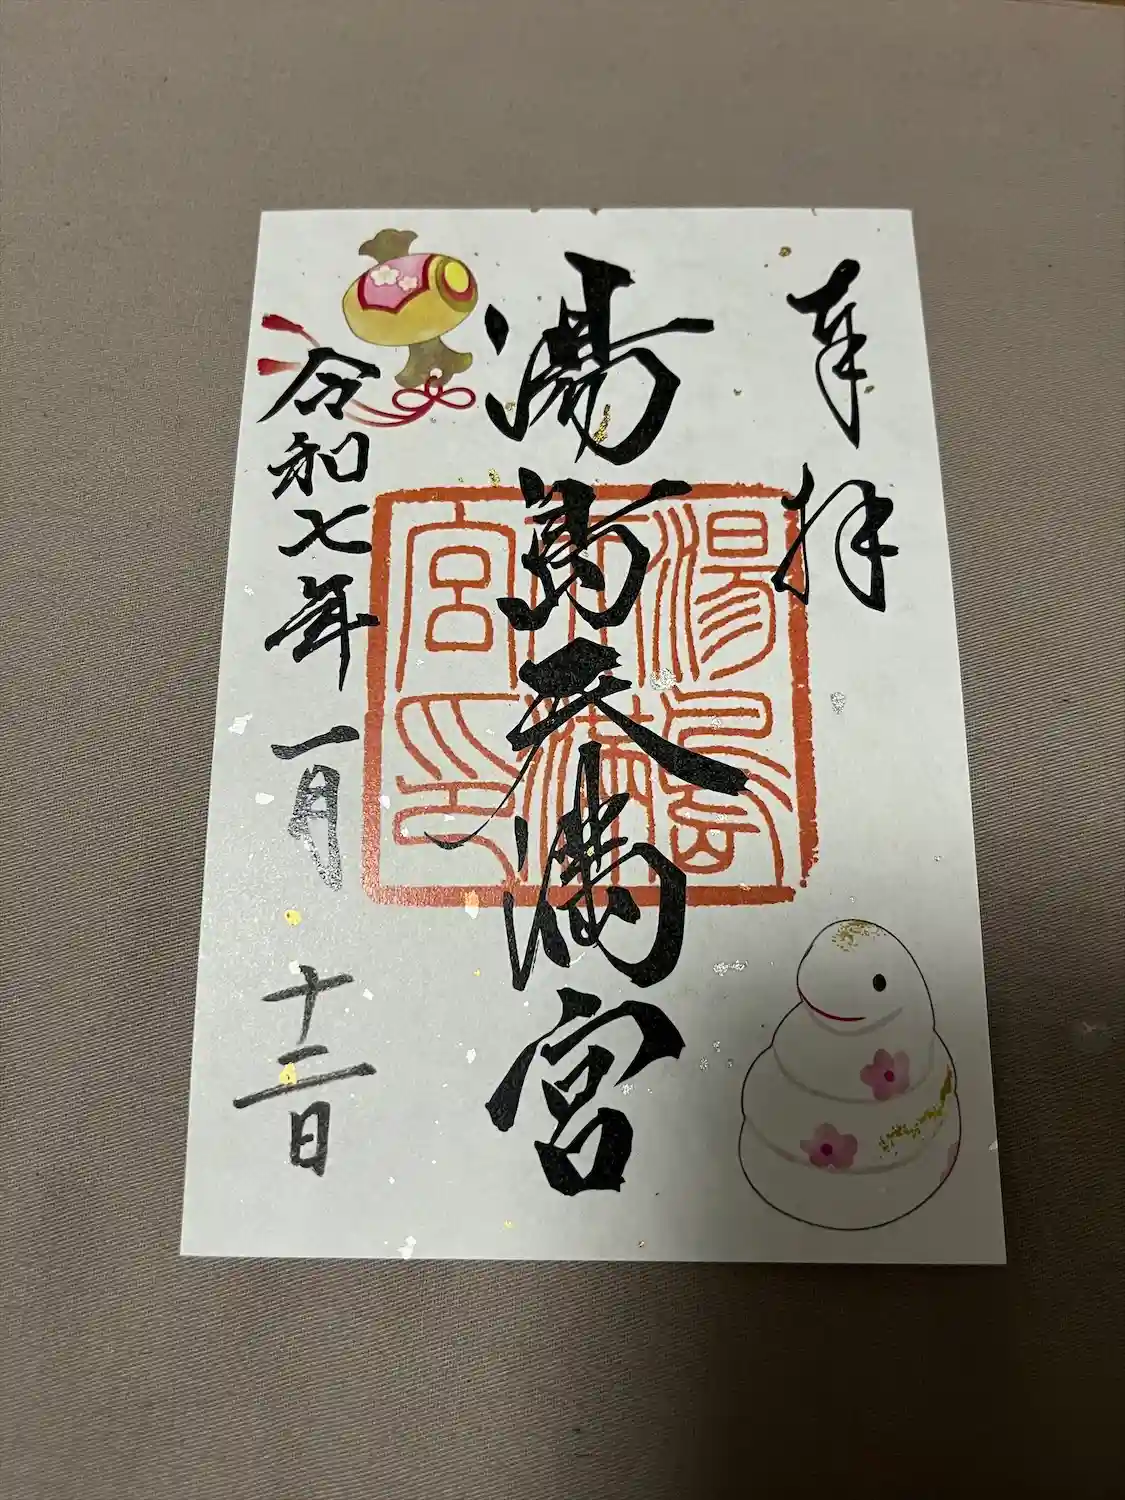 奉拝
湯島天満宮
湯島
天満
宮印
令和七年一月十二日